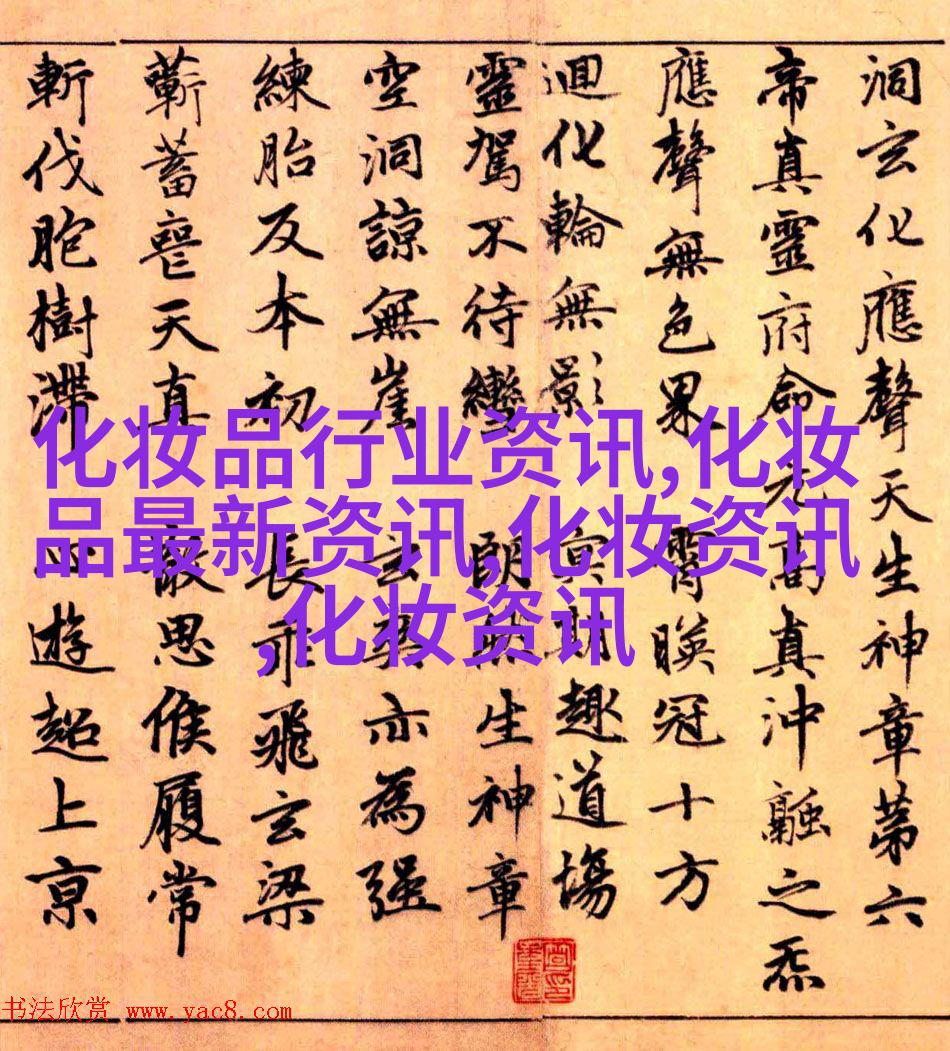 洞玄化應聲天生神章第六
帝真靈府命元高真沖融之炁
應聲無色界 霄映冠十方
迴化輪無影 冥期趣道場
靈駕不待轡 朗然生神章
空洞諒無崖 玄爽亦為强
練胎反本初 長乖飛玄梁
蘄蓄喪天真 散思候履常
斬伐胞樹滯 心遊超上京
化妆品行业资讯,化妆
品最新资讯,化妆资讯
,化妆资讯
书法欣赏 www.yac8.com